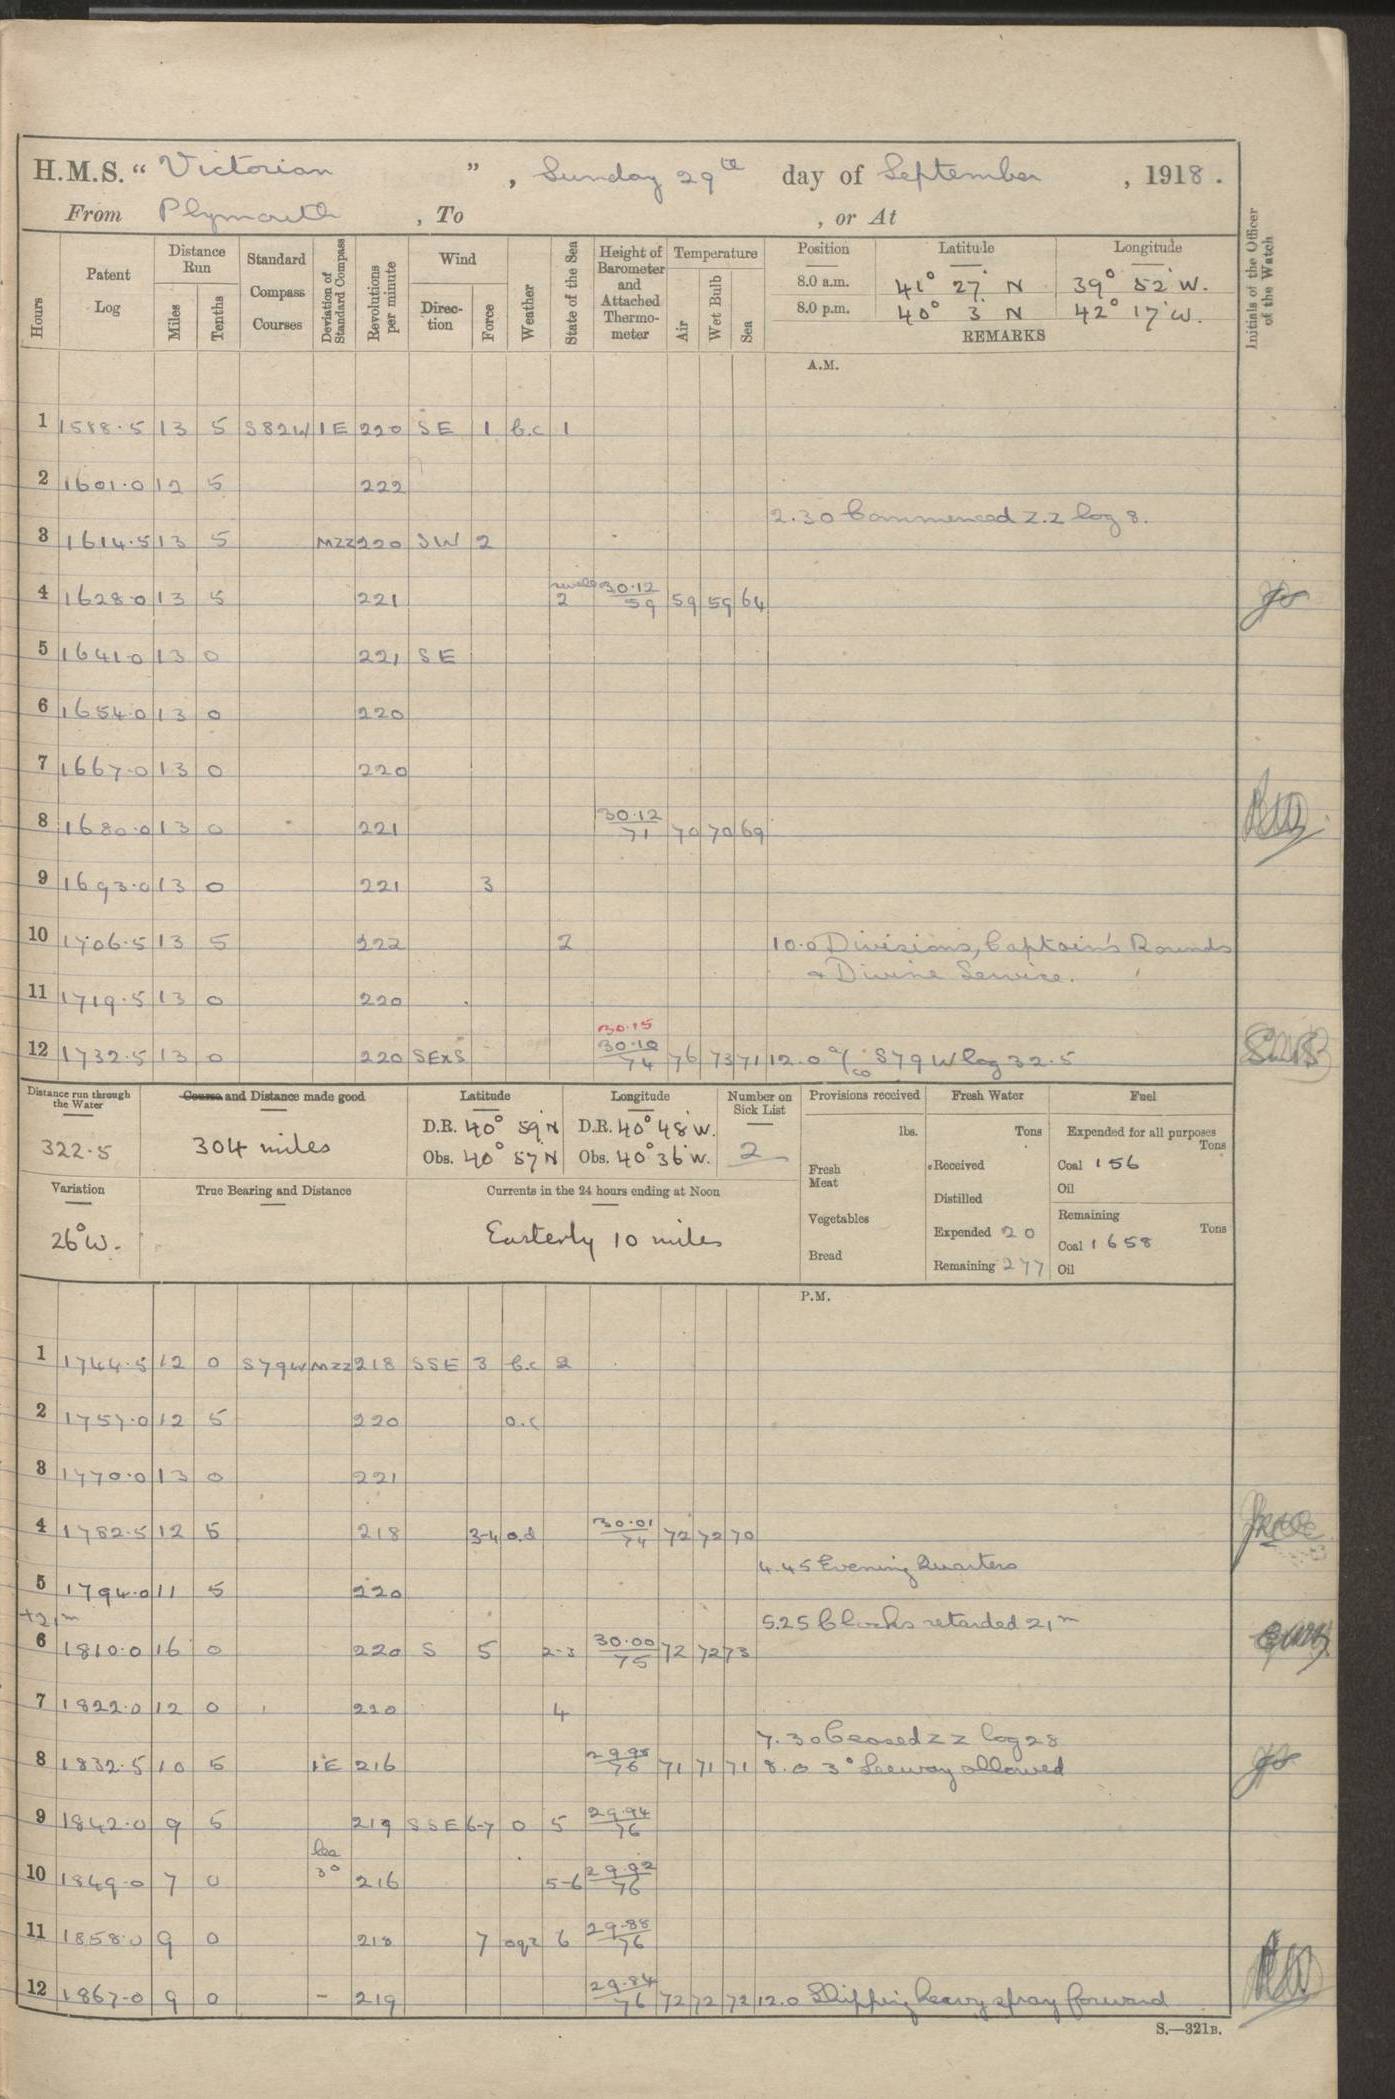 H.M.S. " Victorian " , Sunday 29th day of September , 1918 .
From Plymouth , To , or At
Hours
Patent Log
Distance Run
Miles
Tenths
Standard Compass Courses
Deviation of Standard Compass
Revolutions per minute
Wind
Direction
Force
Weather
State of the Sea
Height of Barometer and Attached Thermometer
Temperature
Air
Wet Bulb
Sea
Position Latitude Longitude
8.0 a.m. 41° 27' N 39° 52' W.
8.0 p.m. 40° 3' N 42° 17' W.
REMARKS
Initials of the Officer of the Watch
A.M.
1 1588.5 13 5 S82W 1E 220 SE 1 b.c 1
2 1601.0 12 5 222
2.30 Commenced Z.Z log 8.
3 1614.5 13 5 MZZ 220 SW 2
4 1628.0 13 5 221 swell 2 30.12/59 59 59 64
5 1641.0 13 0 221 SE
6 1654.0 13 0 220
7 1667.0 13 0 220
8 1680.0 13 0 221 30.12/71 70 70 69
9 1693.0 13 0 221 3
10 1706.5 13 5 222 2 10.0 Divisions, Captain's Rounds
& Divine Service.
11 1719.5 13 0 220
30.15
12 1732.5 13 0 220 SExS 30.10/74 76 73 71 12.0 a/co S79W log 32.5
Distance run through the Water
322.5
Course and Distance made good
304 miles
Latitude
D.R. 40° 59' N
Obs. 40° 57' N
Longitude
D.R. 40° 48' W.
Obs. 40° 36' W.
Number on Sick List
2
Variation
26° W.
True Bearing and Distance
Currents in the 24 hours ending at Noon
Easterly 10 miles
Provisions received
lbs.
Fresh Meat
Vegetables
Bread
Fresh Water
Tons
Received
Distilled
Expended 20
Remaining 277
Fuel
Expended for all purposes
Tons
Coal 156
Oil
Remaining
Tons
Coal 1658
Oil
P.M.
1 1744.5 12 0 S79W MZZ 218 SSE 3 b.c 2
2 1757.0 12 5 220 o.c
3 1770.0 13 0 221
4 1782.5 12 5 218 3-4 o.d 30.01/74 72 72 70
4.45 Evening Quarters
5 1794.0 11 5 220
+21m 5.25 Clocks retarded 21m
6 1810.0 16 0 220 S 5 2-3 30.00/75 72 72 73
7 1822.0 12 0 220 4
7.30 Ceased ZZ log 28
8 1832.5 10 5 1E 216 29.98/76 71 71 71 8.0 3° Leeway allowed
9 1842.0 9 5 219 SSE 6-7 o 5 29.94/76
10 1849.0 7 0 lee 3° 216 5-6 29.92/76
11 1858.0 9 0 218 7 oqr 6 29.88/76
12 1867.0 9 0 - 219 29.84/76 72 72 72 12.0 Shipping heavy spray forward
S.—321B.